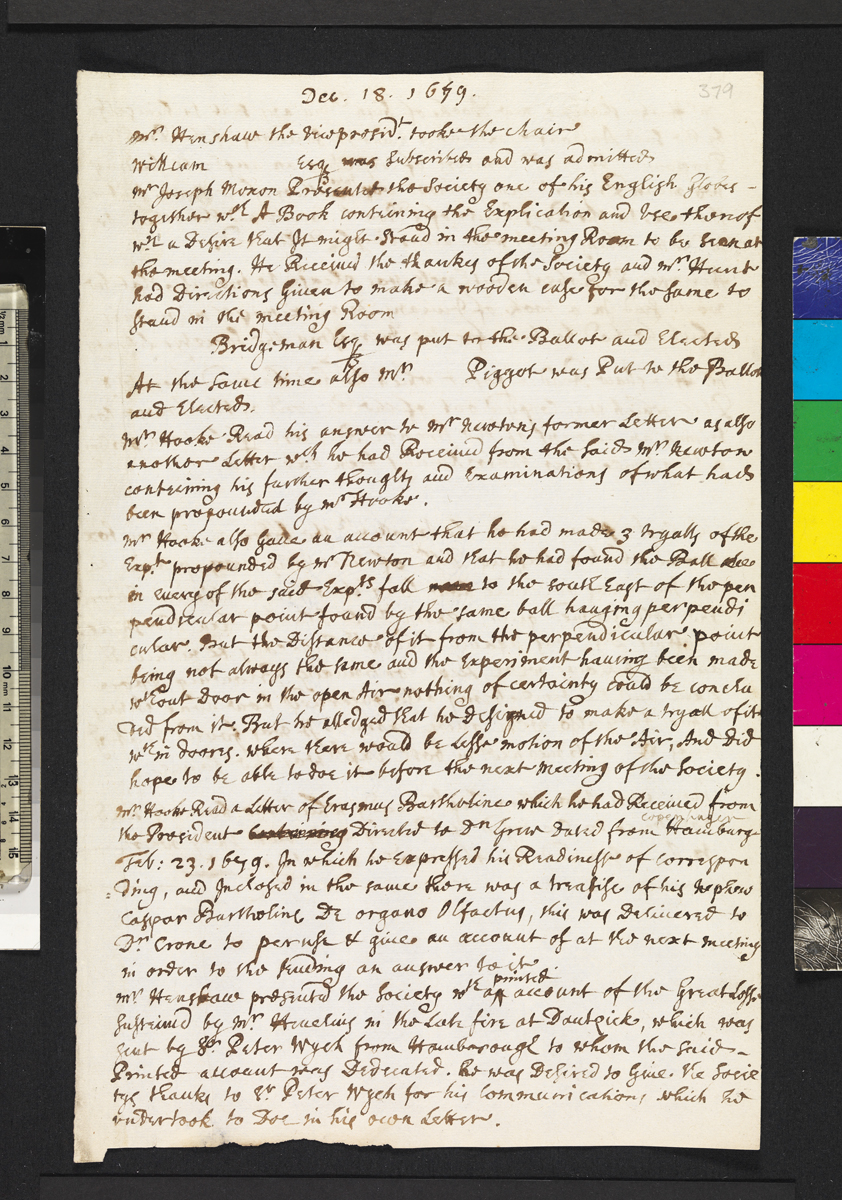 Dec. 18. 1679.
379
Mr. Henshaw the Vicepresidt. tooke the chair
William Esqr was Subscribed and was admitted
Mr Joseph Moxon Presented the Society one of his English Globes -
together wth A Book containing the Explication and Use thereof
wth a Desire that It might Stand in the meeting Room to be seen at
the meeting. He Received the thankes of the Society and Mr. Hunt
had Directions Given to make a wooden case for the same to
stand in the meeting Room
Bridgeman Esqr was put to the Ballot and Elected
At the same time also Mr. Piggot was Put to the Ballot
and Elected.
Mr. Hooke Read his answer to Mr Newtons former Letter as also
another Letter wch he had Received from the said Mr. Newton
containing his further thoughts and Examinations of what had
been propounded by Mr Hooke.
Mr Hooke also Gave an account that he had made 3 tryalls of the
Expt. propounded by Mr Newton and that he had found the Ball
in every of the said Expts fall to the south East of the pen
pendicular point found by the same ball hanging perpendi
cular. But the Distance of it from the perpendicular point
being not always the same and the Experiment having been made
wthout Door in the open Air nothing of certainty could be conclu
ded from it. But he alledged that he designed to make a tryall of it
wthin doores. where there would be Lesse motion of the Air, And Did
hope to be able to doe it before the next Meeting of the Society.
Mr. Hooke Read a Letter of Erasmus Bartholine which he had Received from
Copenhagen
the President Directed to Dr Grew dated from Hamburg
Feb: 23. 1679. In which he Expressed his Readinesse of correspon
=ding, and Inclosed in the same there was a treatise of his Nephew
Caspar Bartholine De organo Olfactus, this was Delivered to
Dr. Crone to peruse & give an account of at the next meeting
in order to the sending an answer to it.
printed
Mr. Henshaw presented the Society wth an account of the Great Losse
sustained by Mr. Hevelius in the Late fire at Dantzick, which was
sent by Sr. Peter Wych from Hamborough to whom the said -
Printed account was Dedicated. he was Desired to Give the Socie
tys thanks to Sr Peter Wych for his Communications which he
undertook to Doe in his own Letter.